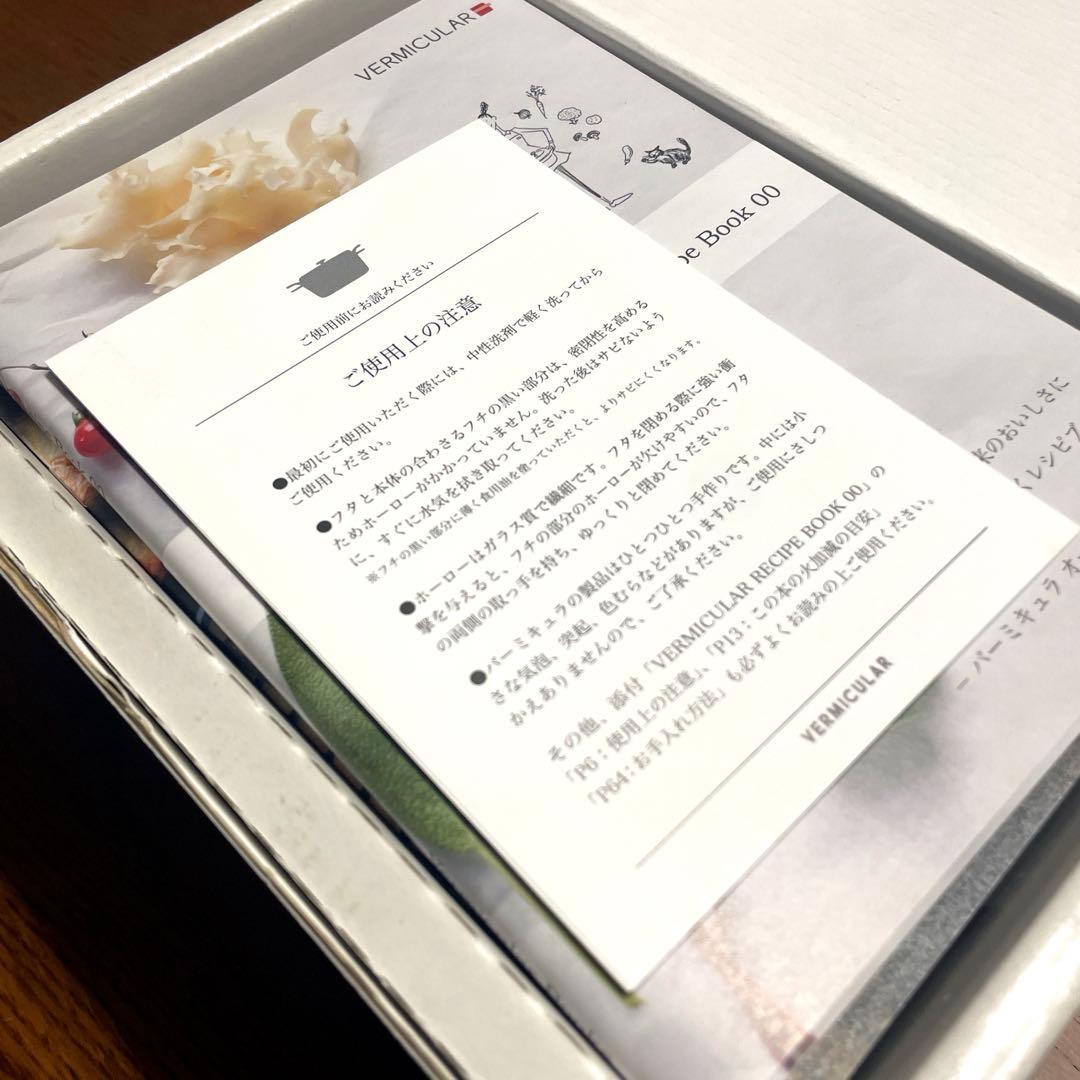 VERMICULAR
pe Book 00
ご使用前にお読みください
ご使用上の注意
●最初にご使用いただく際には、中性洗剤で軽く洗ってから
ご使用ください。
●フタと本体の合わさるフチの黒い部分は、密閉性を高める
ためホーローがかかっていません。洗った後はサビないよう
に、すぐに水気を拭き取ってください。
※フチの黒い部分に薄く食用油を塗っていただくと、よりサビにくくなります。
●ホーローはガラス質で繊細です。フタを閉める際に強い衝
撃を与えると、フチの部分のホーローが欠けやすいので、フタ
の両側の取っ手を持ち、ゆっくりと閉めてください。
●バーミキュラの製品はひとつひとつ手作りです。中には小
さな気泡、突起、色むらなどがありますが、ご使用にさしつ
かえありませんので、ご了承ください。
その他、添付「VERMICULAR RECIPE BOOK 00」の
「P6：使用上の注意」、「P13：この本の火加減の目安」
「P64：お手入れ方法」も必ずよくお読みの上ご使用ください。
VERMICULAR
米のおいしさに
くレシピブ
– バーミキュラ オ